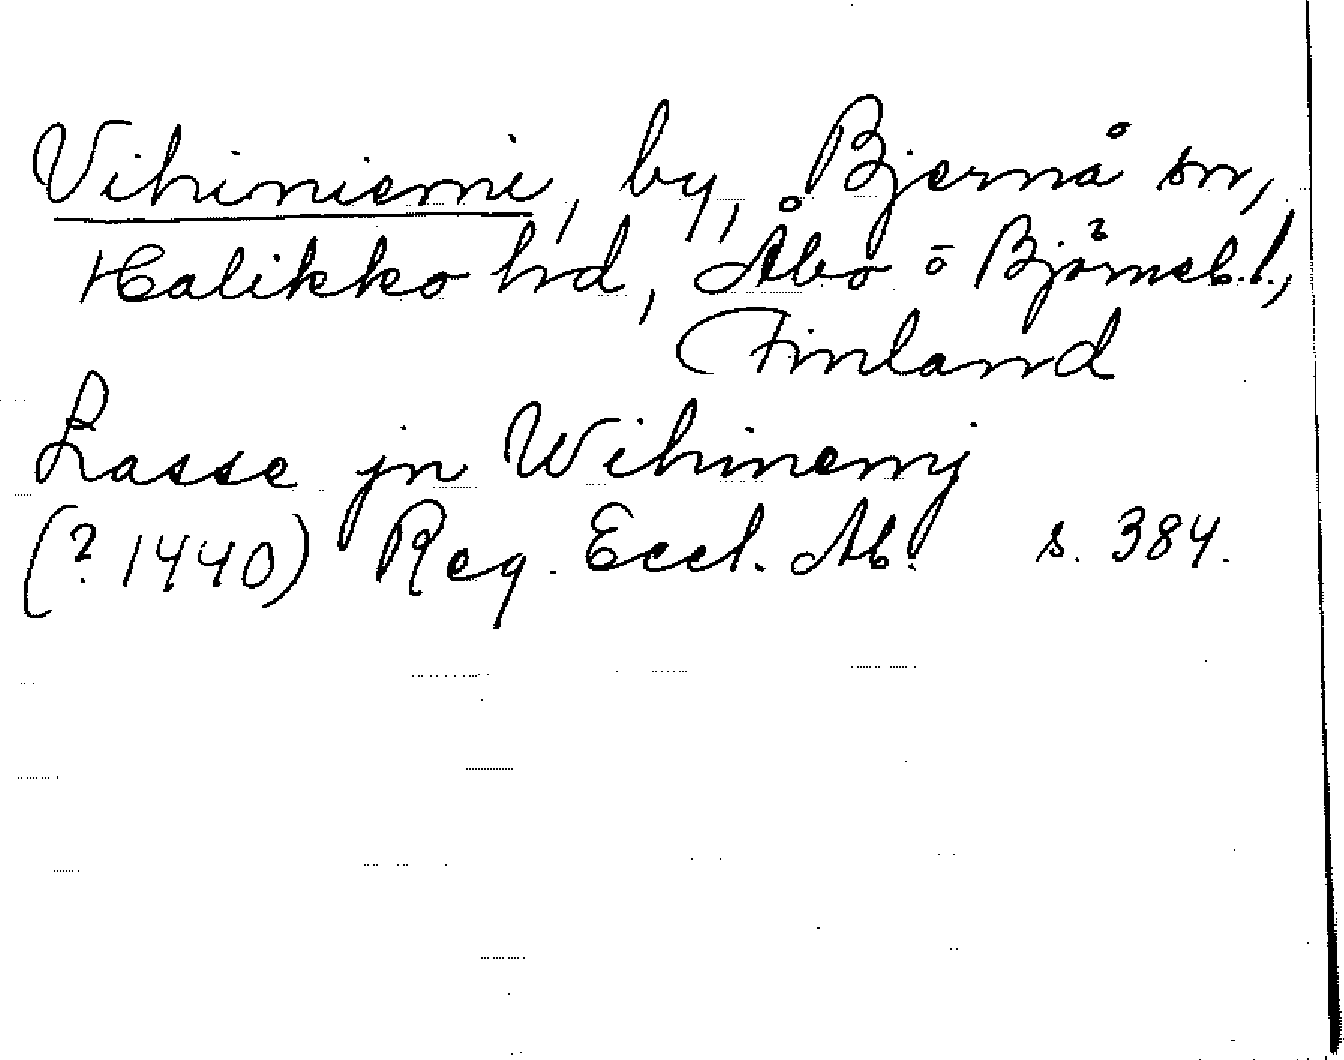 Vihiniemi, by, Bjernå sn,
Halikko hd, Åbo o Björneb. l.,
Finland
Lasse jn Wihinemj
(? 1440) Reg. Eccl. Ab. s. 384.